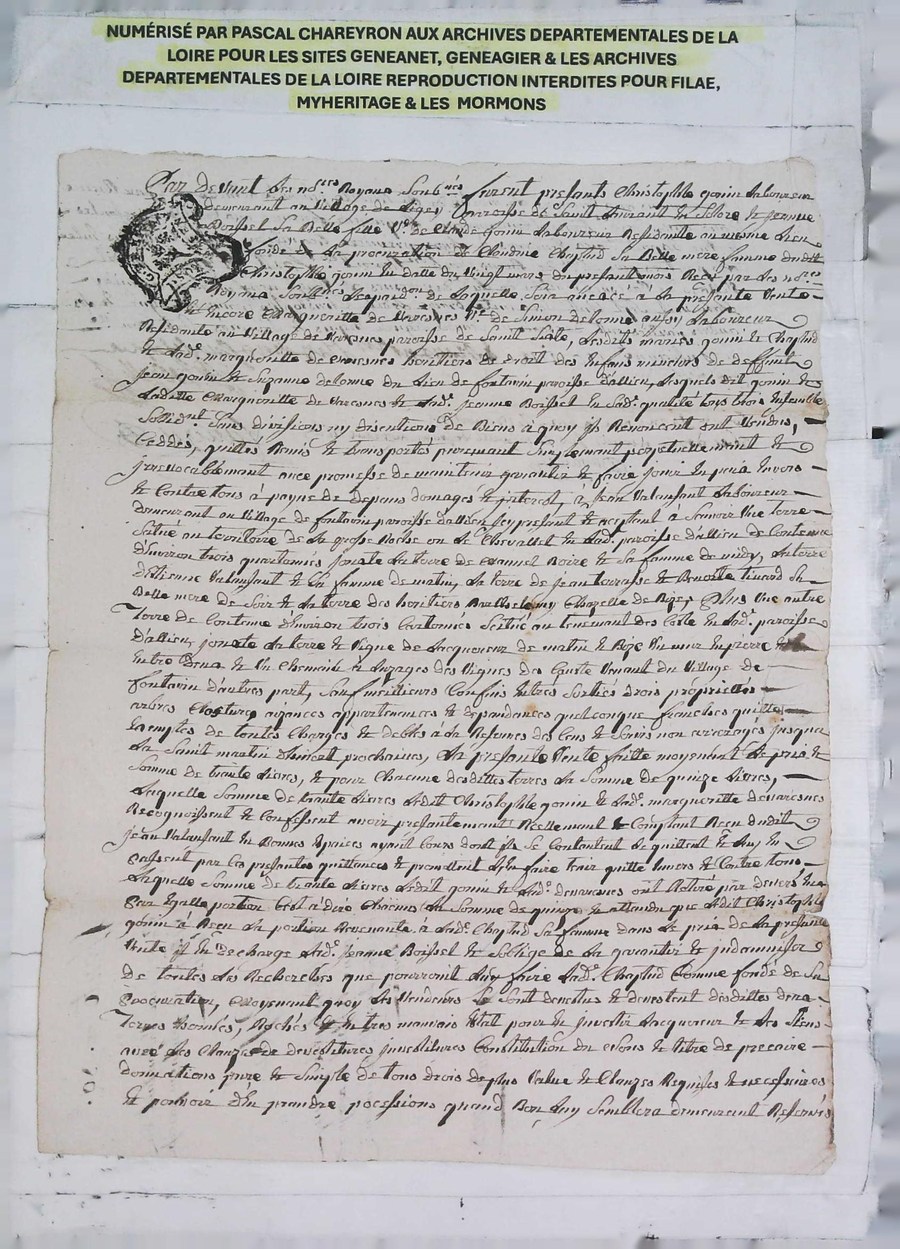 NUMÉRISÉ PAR PASCAL CHAREYRON AUX ARCHIVES DEPARTEMENTALES DE LA
LOIRE POUR LES SITES GENEANET, GENEAGIER & LES ARCHIVES
DEPARTEMENTALES DE LA LOIRE REPRODUCTION INTERDITES POUR FILAE,
MYHERITAGE & LES MORMONS
Par Devant Les no.res Royaux Soub.nés furent presants Christophle gonin Laboureur
demeurant au Village de paroisse de Saint & Jeanne
Boissel Sa Belle fille V.e de Claude gonin Laboureur Residante au mesme Lieu
fondé de La procuration de Claudine Chaptud Sa Belle mere famme dudit
Christophle gonin En datte du Vingt mars du presant mois Receu par Les no.res
Royaux Soub.nés de Laquelle Sera à La presante Vente
Et Encore Margueritte de Varesnes V.e de Simon delorme Laboureur
Residante au Village de Varesnes paroisse de Saint Lesdits mariés gonin & Chaptud
& Lad.e margueritte de Varesnes heritiers de droit des Enfans mineurs de deffunt
Jean gonin & Suzanne delorme du Lieu de fontavin paroisse d'allieu, Lesquels dit gonin &
Laditte Margueritte de Varesnes & Lad.e Jeanne Boissel En Lad.e qualité tous trois Ensemble
Sollid.nt Sans divisions ny discutions de Biens à quoy ils Renoncent ont Vendus,
Ceddés, quittés Remis & transportés purement Simplement perpetuellement &
jrrevocablement avec promesse de maintenir garantir & faire jouir En paix Envers
& Contre tous à payne de depans domages & jnterest, à Jean Valansant Laboureur
demeurant au Village de fontavin paroisse d'allieu jcy presant & aceptant à Scavoir Une terre
Scitué au territoire de La grosse ou Le Chevallet En Lad. paroisse d'allieu de Contenue
d'Environ trois quartonnés jouxte La terre de & Sa famme de midy, La terre
d'Etienne Valansant & Sa famme de matin, La terre de Jean terrasse & Benoitte Sa
Belle mere de Soir & La terre des heritiers Barthelemy Chapelle de Bize, Plus Une autre
Terre de Contenue d'Environ trois Cartonnés Scitué au tenement des En Lad.e paroisse
d'allieu, jouxte La terre & Vigne de Lacquereur de matin & Bize Un mur En pierre
Entre deux & Un Chemain à Lusages des Vignes de Venant du Village de
fontavin d'autres part, Sauf meilleurs Confins Entres Sorties droits proprietés
arbres Clostures aizances appartenances & dependances quelconque franches quittes
Exemptes de toutes Charges & debtes à La Reserves des Cens & Servis non arerages jusqua
La Saint martin d'hivert prochaines, La presante Vente faitte moyenant Le prix &
Somme de trante Livres, & pour Chacune desdittes terres La Somme de quinze Livres,
Laquelle Somme de trante Livres Ledit Christophle gonin & Lad.e margueritte de Varesnes
Recognoissent & Confessent avoir presantement Reellement & Comptant Receu dudit
Jean Valansant En Bonnes Espaices ayant Cours dont ils Se Contentent & quittent & Luy En
passent par Les presantes quittances & promettent Len faire tenir quitte Envers & Contre tous
Laquelle Somme de trante Livres Ledit gonin & Lad.e de Varesnes ont Retiré par devers Eux
par Egalle portion Cest à dire Chacuns La Somme de quinze & attendu que Ledit Christophle
gonin à Receu La portion Revenante à Lad.e Chaptud Sa famme dans Le prix de La presante
Vente jl En decharge Lad.e Jeanne Boissel & Soblige de La garantir & jndamniser
de toutes Les Recherches que pourroint Luy faire Lad.e Chaptud Comme fondé de Sa
Procuration, Moyenant quoy Les Vendeurs Se Sont devetus & devestent desdittes deux
Terres & En tres mauvais Etat pour En jnvestir Lacquereur & Les Siens
avec Les Clauzes de devestitures jnvestitures Constitution & titre de precaire
donnations pure & Simple de tous droits de plus Value & Clauzes Requises & necessaires
& pouvoir d'En prandre pocessions quand Bon Luy Semblera demeurent Reservés